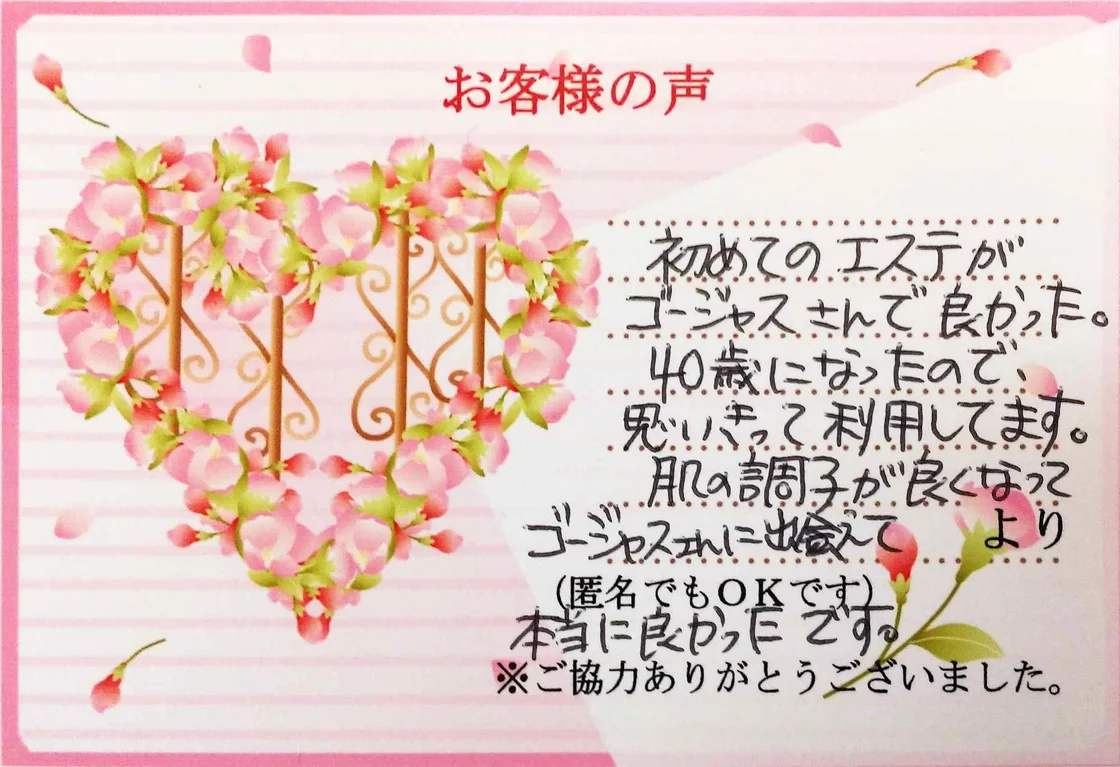 お客様の声
初めてのエステが
ゴージャスさんで良かった。
40歳になったので、
思いきって利用してます。
肌の調子が良くなって
ゴージャスさんに出会えて
より
(匿名でもOKです)
本当に良かったです。
※ご協力ありがとうございました。